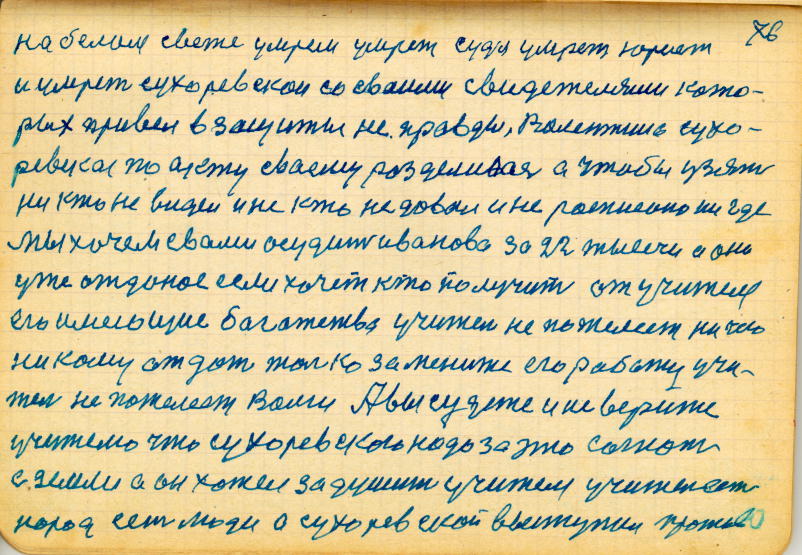 76
на белом свете умрем умрет судя умрет юрист
и умрет сухоревской со своими свидетелями кото-
рых привел в защиты не правды, Валентина сухо-
ревская по акту своему разделилая а чтобы узять
ни кто не видел и не кто не довал и не росписано ни где
мы хочем свами осудить иванова за 22 тысечи а оно
уже отдоное если хочет кто получить от учителя
его имеющие багатетва учител не пожелеет ни чао
ни кому отдат толко замените его работу учи-
тел не пожелеет Волги А вы судете и не верите
учителю что сухоревского надо за это согнат
с земли а он хотел задушит учителя учител ест
народ ест люди а сухоревской выступил против